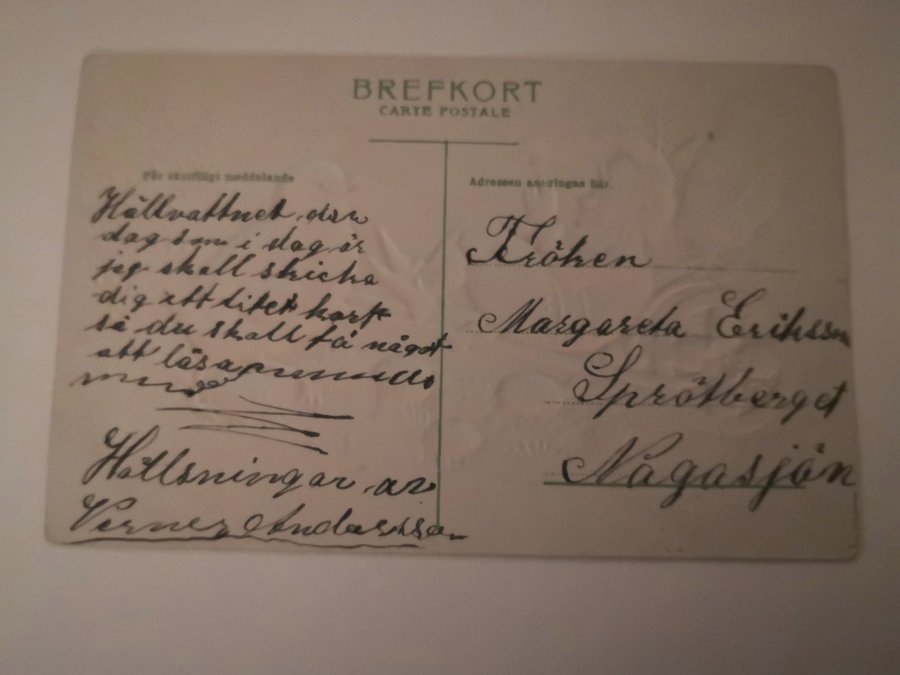 BREFKORT
CARTE POSTALE
För skriftligt meddelande
Hällvattnet den
dag som i dag är
jag skall skicka
dig ett litet kort
så du skall få något
att läsa
Hällsningar av
Verner Andersson
Adressen anbringas här.
Fröken
Margareta Eriksson
Sprötberget
Någasjön